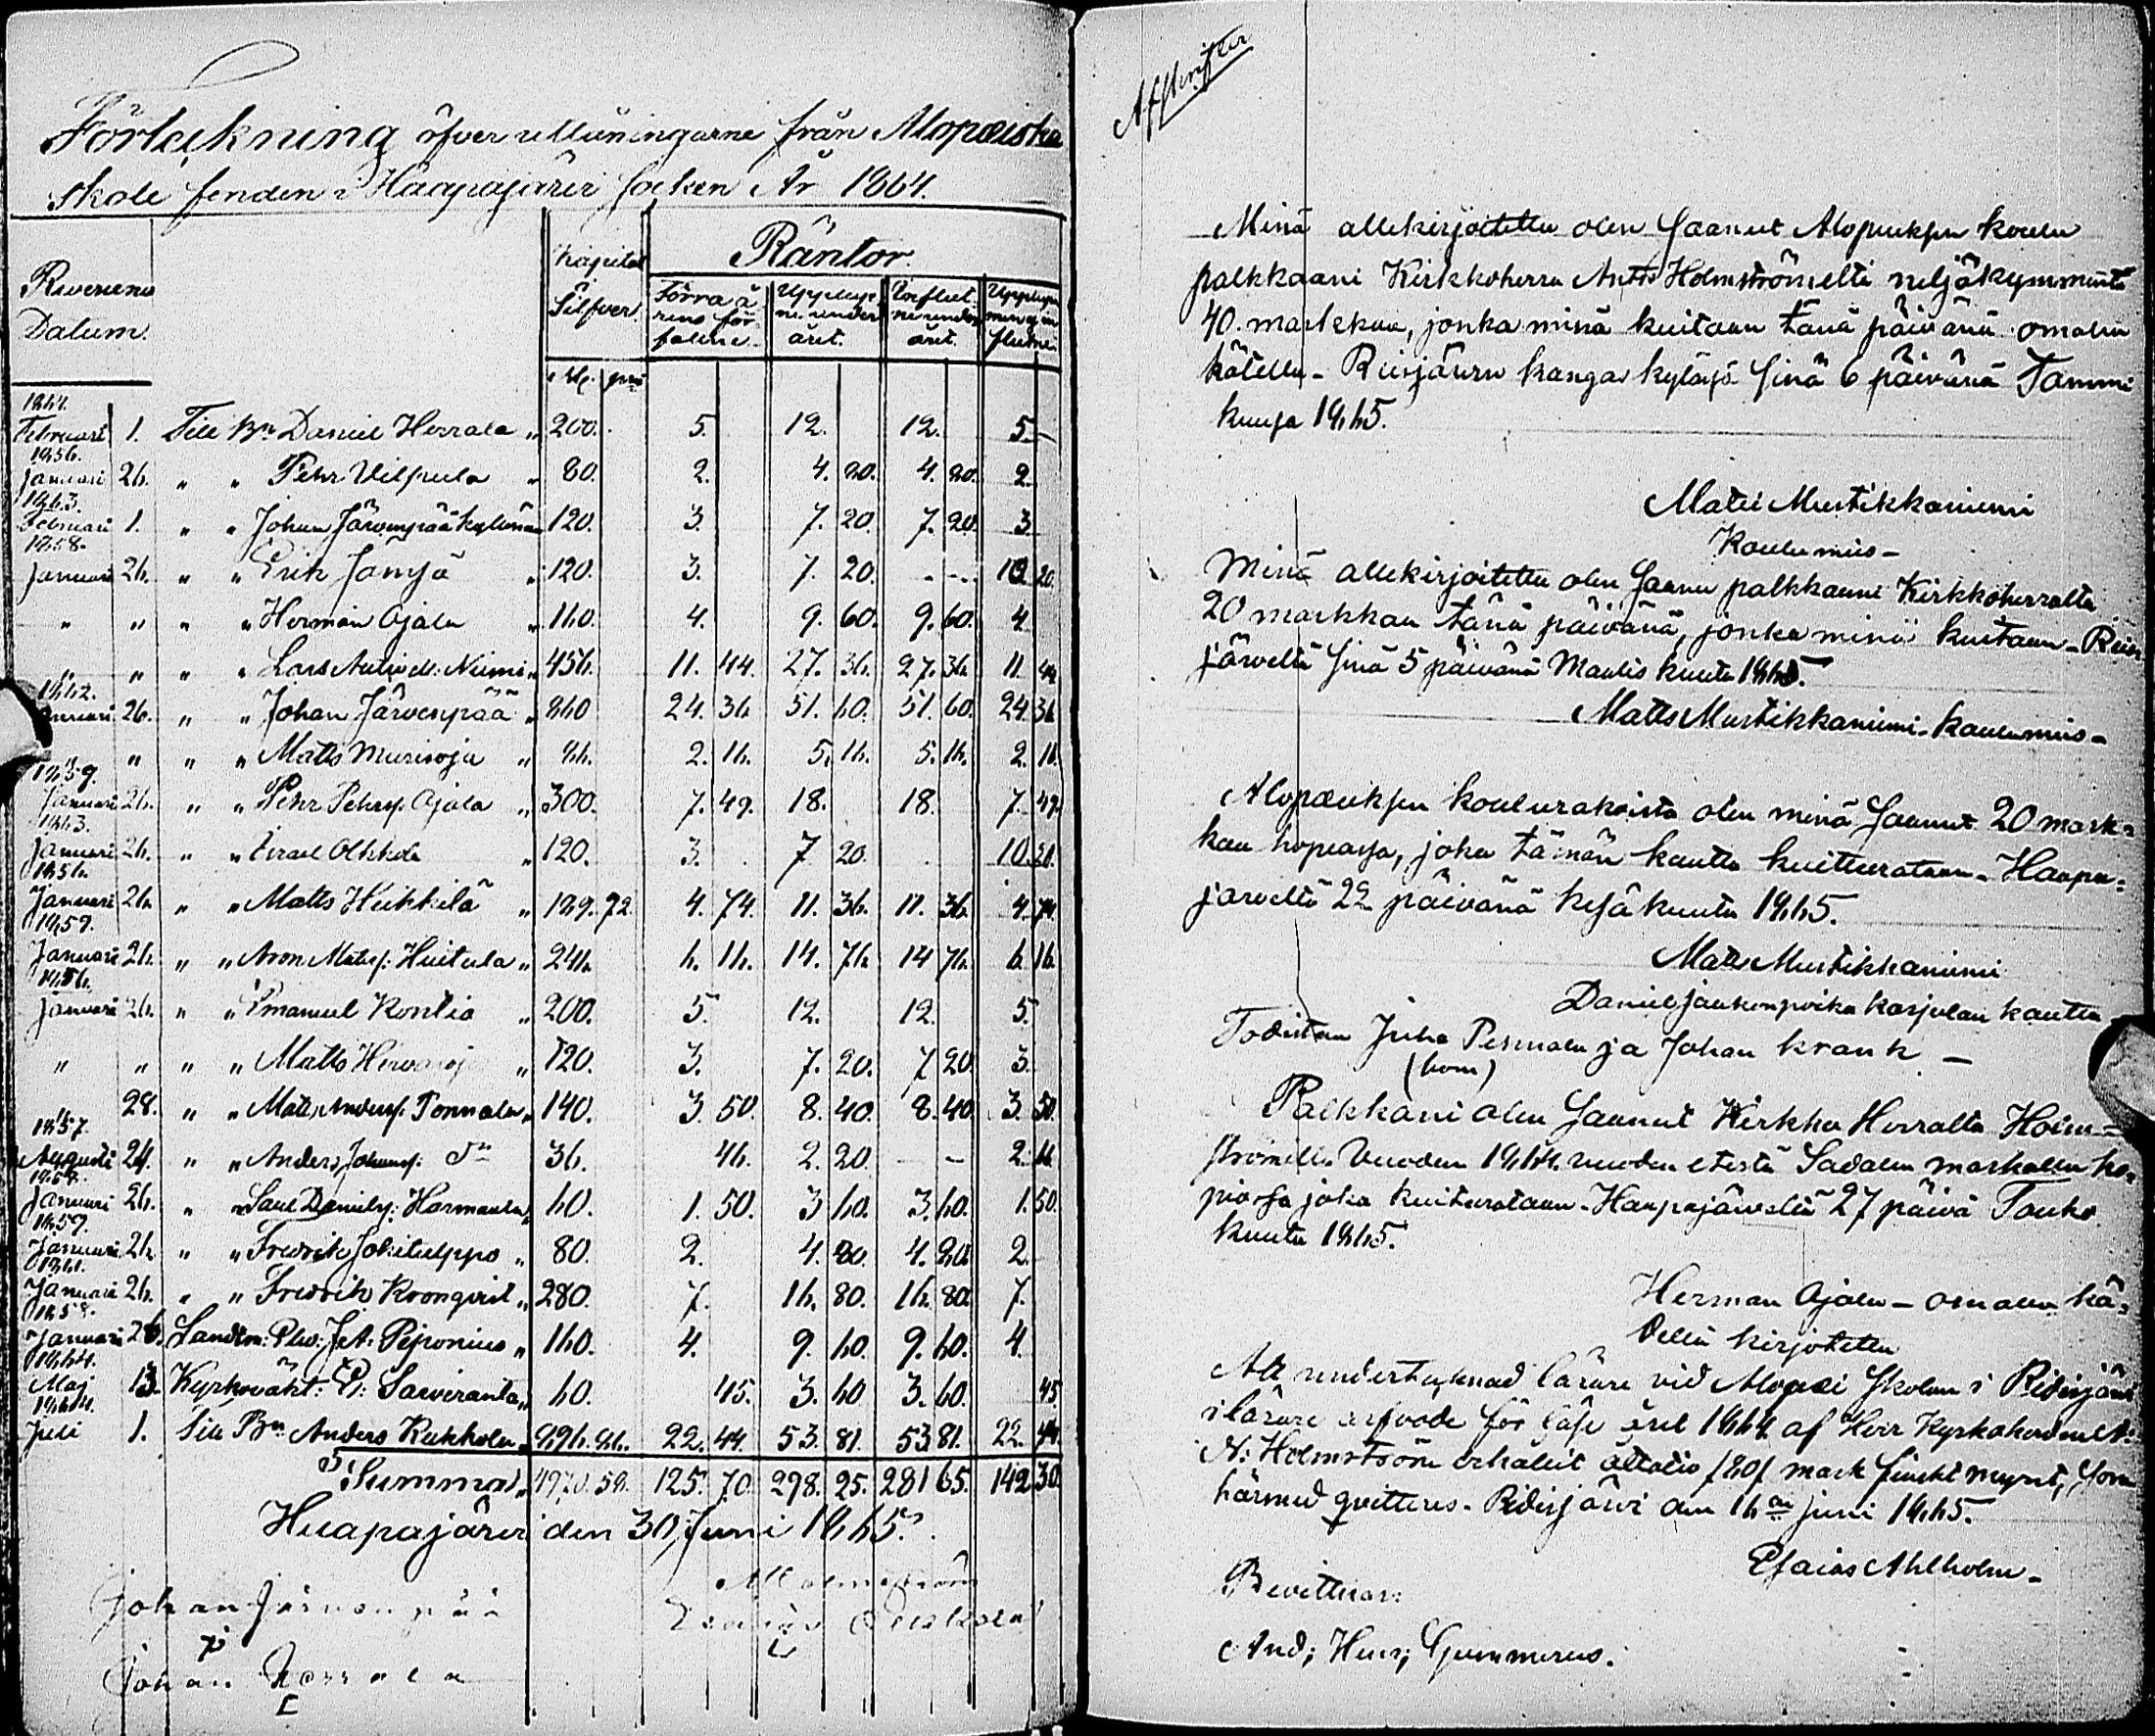 Förteckning öfver utlåningarne från Alopæiska
skole fonden i Haapajärvi socken År 1864.
Reversens Datum. Kapital Silfver. Räntor.
Förra årens förfallne. Upplupne under året. Influtne under året. Upplupne men ej influtne.
1864. Februari 1. Till Bn Daniel Herrala " 200. 5. 12. 12. 5.
1856. Januari 26. " " Pehr Vilpula " 80. 2. 4. 80. 4. 80. 2.
1863. Februari 1. " " Johan Järvenpää 120. 3. 7. 20. 7. 20. 3.
1858. Januari 26. " " Erik Jämsä " 120. 3. 7. 20. 10. 20.
" " " " Herman Ajala " 160. 4. 9. 60. 9. 60. 4.
" " " " Lars Autio Niemi " 456. 11. 44. 27. 36. 27. 36. 11. 44
1862. Januari 26. " " Johan Järvenpää " 860 24. 36 51. 60. 51. 60. 24. 36
" " " " Matts Murisoja " 86. 2. 16. 5. 16. 5. 16. 2. 16.
1859. Januari 26. " " Pehr Pehrs. Ajala " 300. 7. 49. 18. 18. 7. 49.
1863. Januari 26. " " Israel Olkkola " 120. 3. 7 20. 10. 20.
1856. Januari 26. " " Matts Heikkilä " 189. 72. 4. 74. 11. 36. 11. 36. 4. 74.
1859. Januari 26. " " Aron Matss. Huitula " 246. 6. 16. 14. 76. 14 76. 6. 16.
1856. Januari 26. " " Emanuel Kontio " 200. 5. 12. 12. 5.
" " " " Matts Hirvasoja " 120. 3. 7. 20. 7 20. 3.
" 28. " " Matts Anderss. Tonnola " 140. 3. 50. 8. 40. 8. 40. 3. 50.
1857. Augusti 24. " " Anders Johanss. Dn 36. 46. 2. 20. – 2. 66
1858. Januari 26. " " Saul Daniels. Harmaala " 60. 1. 50. 3 60. 3. 60. 1. 50.
1859. Januari 26. " " Fredrik Jokitulppo " 80. 2. 4. 80. 4. 80. 2.
1861. Januari 26. " " Fredrik Kronqvist " 280. 7. 16. 80. 16. 80. 7.
1858. Januari 26. Landtm. J. A. Peponius " 160. 4. 9. 60. 9. 60. 4.
1864. Maj 13. Kyrkovakt: E: Saviranta " 60. 45. 3. 60 3. 60. 45.
1864. Juli 1. Till Bn Anders Kukkola " 896. 86. 22. 44. 53. 81. 53 81. 22. 44
Summa " 4970. 58. 125. 70. 298. 25. 281 65. 142 30
Haapajärvi den 30 Juni 1865.
AHolmström
Johan Järvenpää
Johan Herrala
Afskrifter
Minä allekirjoitettu olen saanut Alopeuksen koulu
palkkaani Kirkkoherra Antti Holmströmeltä neljäkymmentä
40. markkaa, jonka minä kuitaan tänä päivänä omalla
kädellä – Reisjärven kangas kylässä sinä 6 päivänä Tammi
kuussa 1865.
Matti Mustikkaniemi
Koulumies –
Minä allekirjoitettu olen saanu palkkaani Kirkkoherralta
20 markkaa tänä päivänä, jonka minä kuitaan – Reis
järveltä sinä 5 päivänä Maalis kuuta 1865.
Matts Mustikkaniemi. koulumies –
Alopæuksen koulurahoista olen minä saanut 20 mark=
kaa hopeassa, joka tämän kautta kuitterataan – Haapa=
järveltä 22 päivänä kesäkuuta 1865.
Matts Mustikkaniemi
Daniel Jaakonpoika Karjulan kautta
Todistaa Juho Pesmalu ja Johan Krank –
(bom)
Palkkani olen saanut Kirkko Herralta Holm=
strömillä Vuoden 1864. vuoden etestä Sadalla markalla ho=
piassa joka kuiterataan – Haapajärveltä 27 päivä Touko
kuuta 1865.
Herman Ajala – omalla kä=
dellä kirjotettu
Att undertecknad lärare vid Alopæi Skolan i Reisjärvi
i lärare arfvode för läse året 1864 af Herr Kyrkoherden A:
N: Holmström erhållit åttatio /80/ mark finskt mynt, som
härmed qvitteres. Reisjärvi den 16de juni 1865.
Esaias Ahlholm –
Bevittnar:
And; Henr; Gummerus.